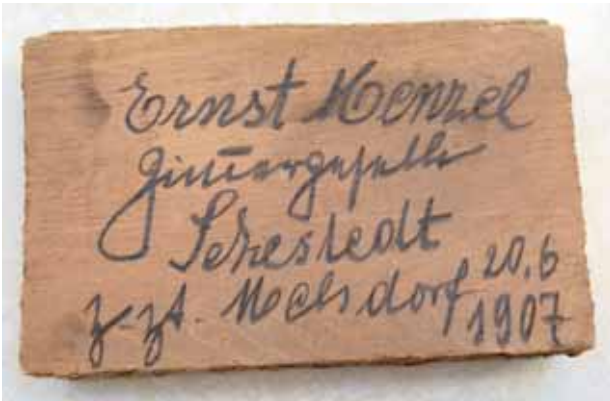 Ernst Menzel
Zim̅ergeselle
Sehestedt
z. Zt. Melsdorf 20.6
1907